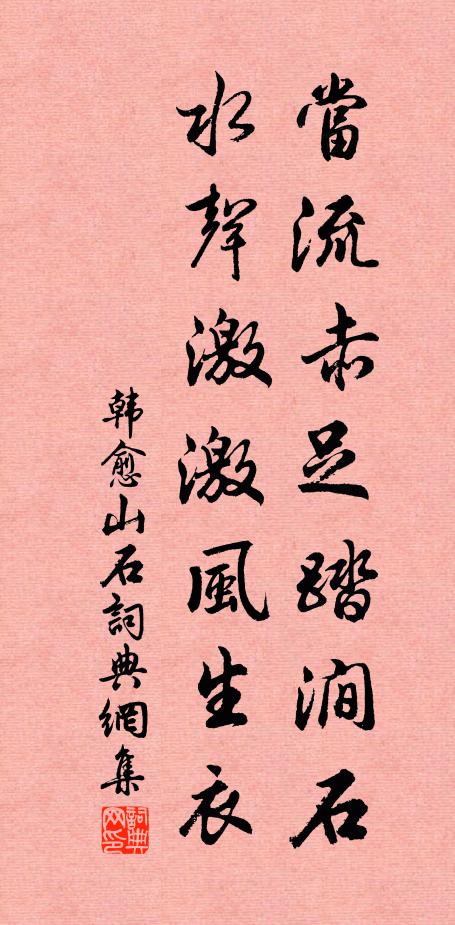 當流赤足踏澗石
水聲激激風生衣
韓愈山石詞典網集
詞典网印